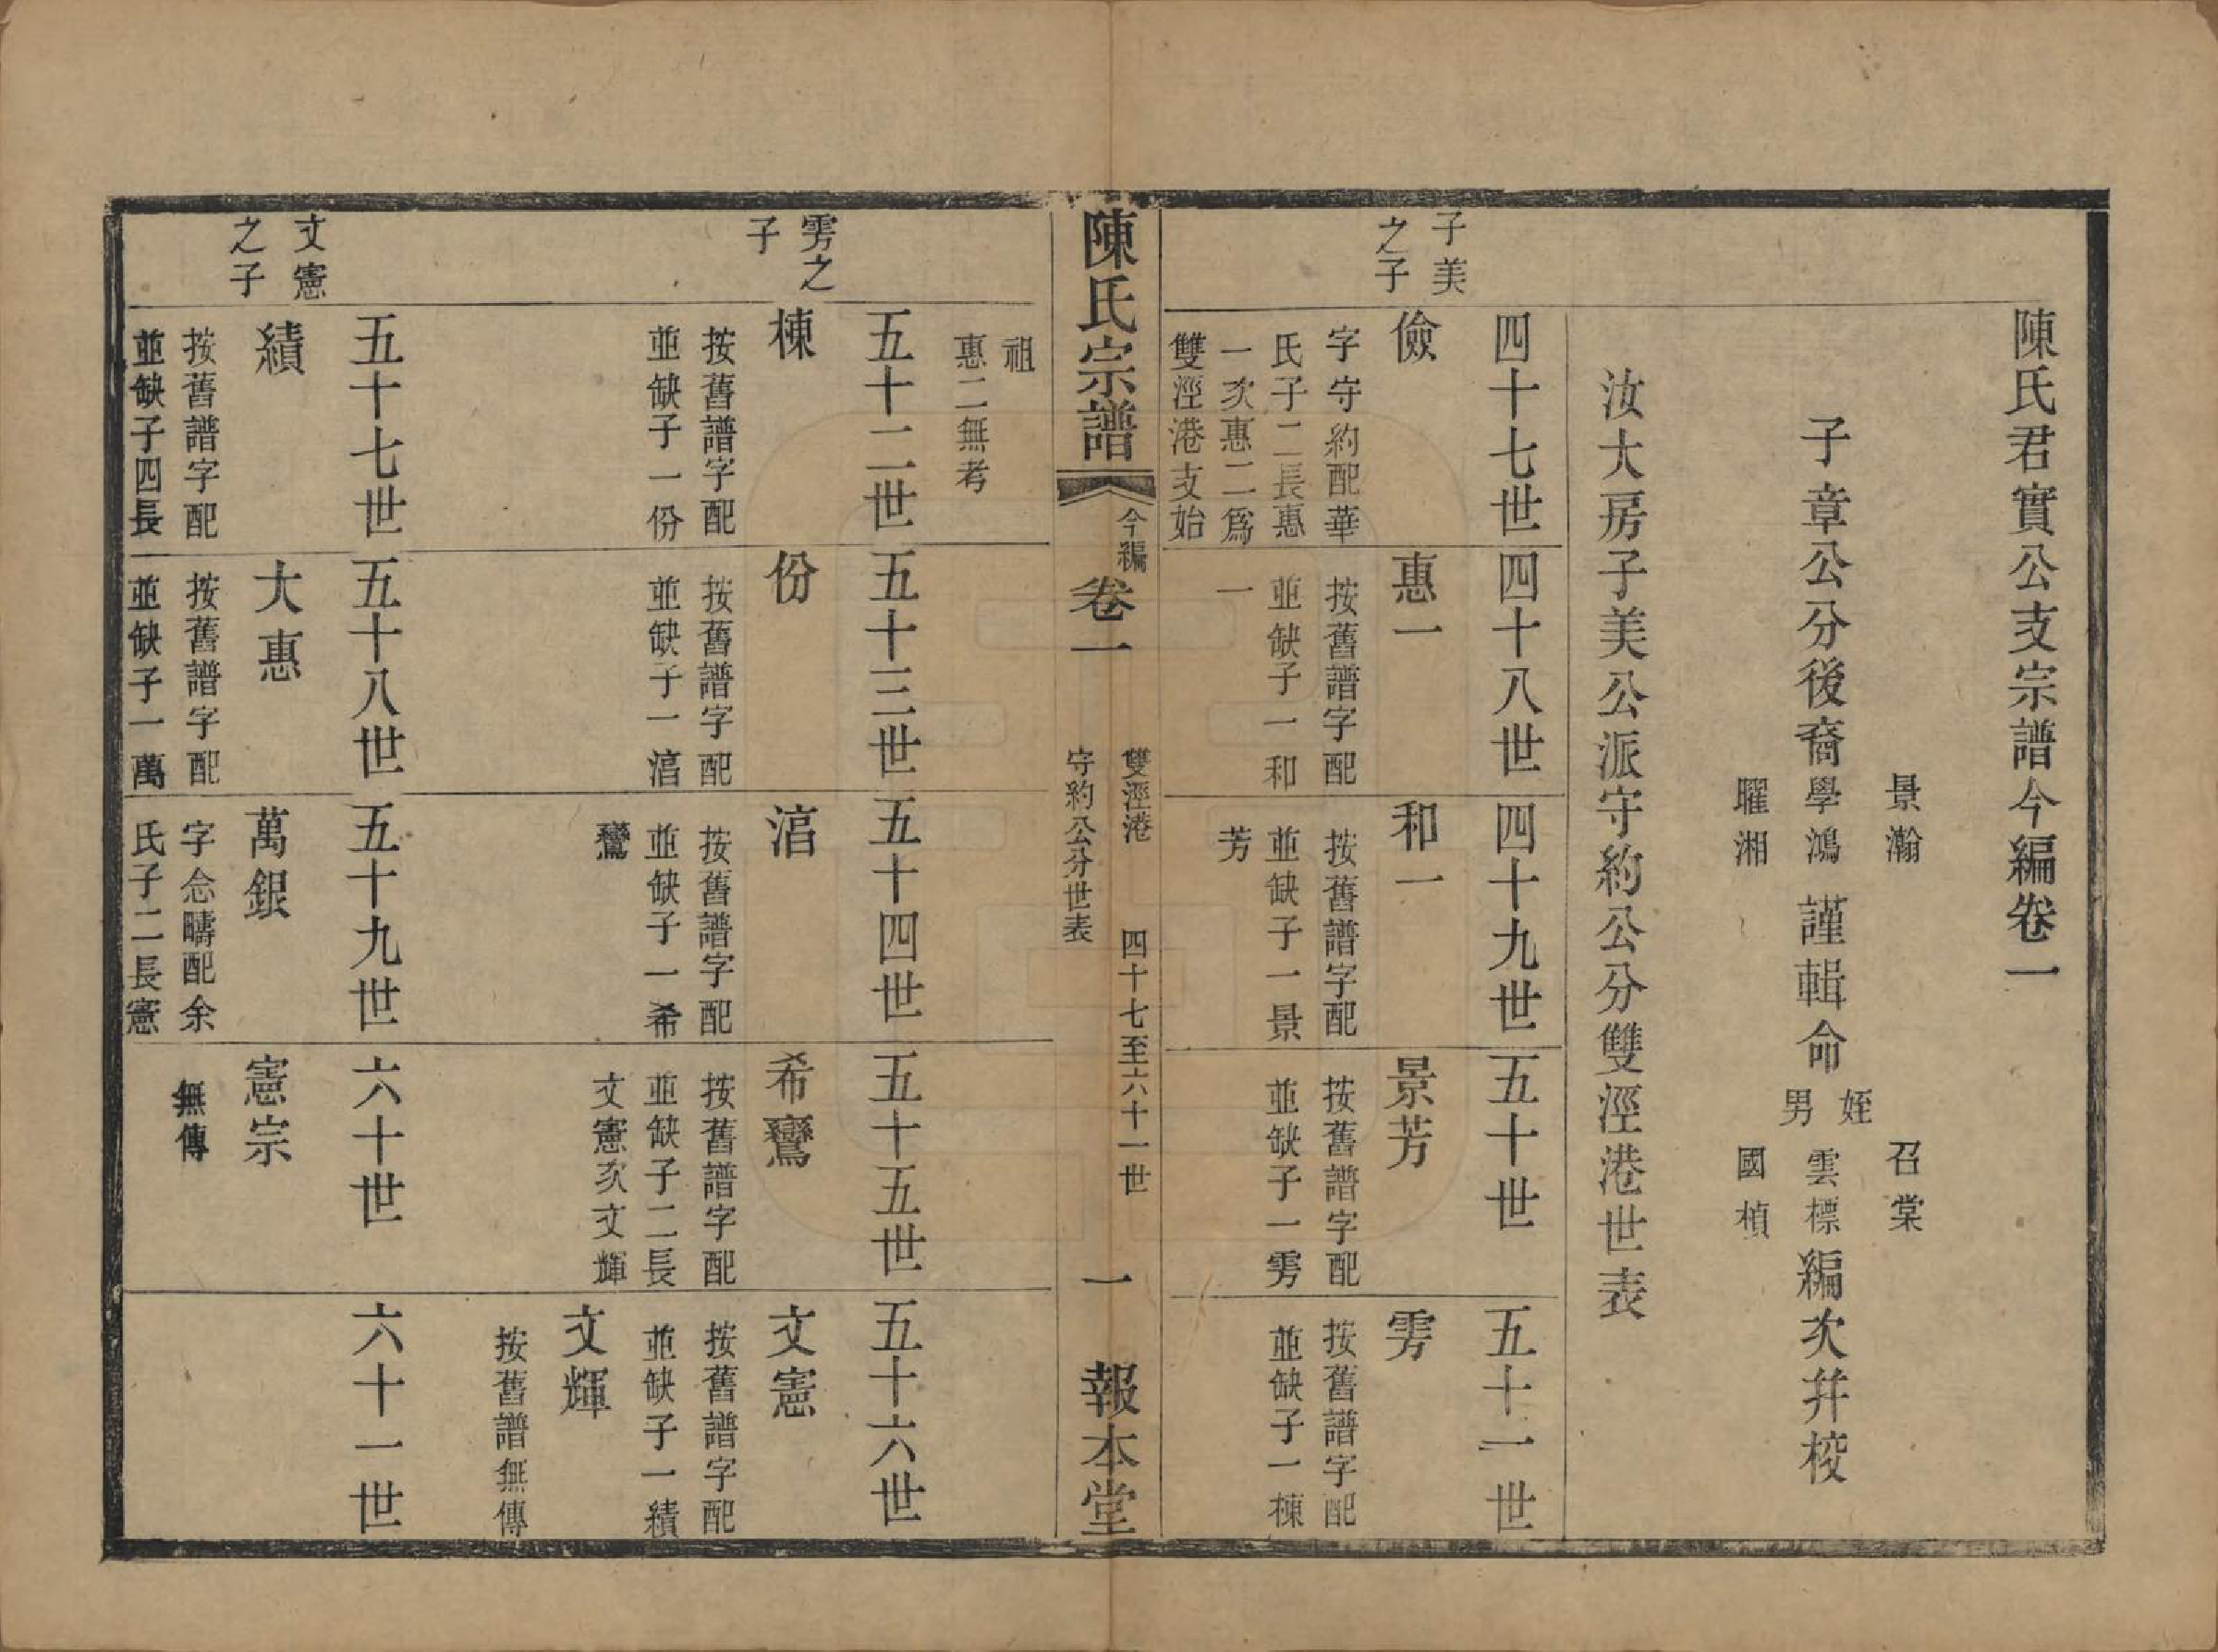 陳氏君實公支宗譜今編卷一
景瀚
子章公分後裔學鴻謹輯命
曜湘
姪男
召棠
雲標編次幷校
國楨
汝大房子美公派守約公分雙涇港世表
子美之子
四十七世
儉
字守約配華
氏子二長惠
一次惠二爲
雙涇港支始
祖
惠二無考
四十八世
惠一
按舊譜字配
並缺子一和
一
四十九世
和一
按舊譜字配
並缺子一景
芳
五十世
景芳
按舊譜字配
並缺子一雱
五十一世
雱
按舊譜字配
並缺子一棟
陳氏宗譜
今編
卷一
雙涇港
守約公分世表
四十七至六十一世
一
報本堂
雱之子
五十二世
棟
按舊譜字配
並缺子一份
五十三世
份
按舊譜字配
並缺子一湻
五十四世
湻
按舊譜字配
並缺子一希
鸞
五十五世
希鸞
按舊譜字配
並缺子二長
文憲次文輝
五十六世
文憲
按舊譜字配
並缺子一績
文輝
按舊譜無傳
文憲之子
五十七世
績
按舊譜字配
並缺子四長
五十八世
大惠
按舊譜字配
並缺子一萬
五十九世
萬銀
字念疇配余
氏子二長憲
六十世
憲宗
無傳
六十一世